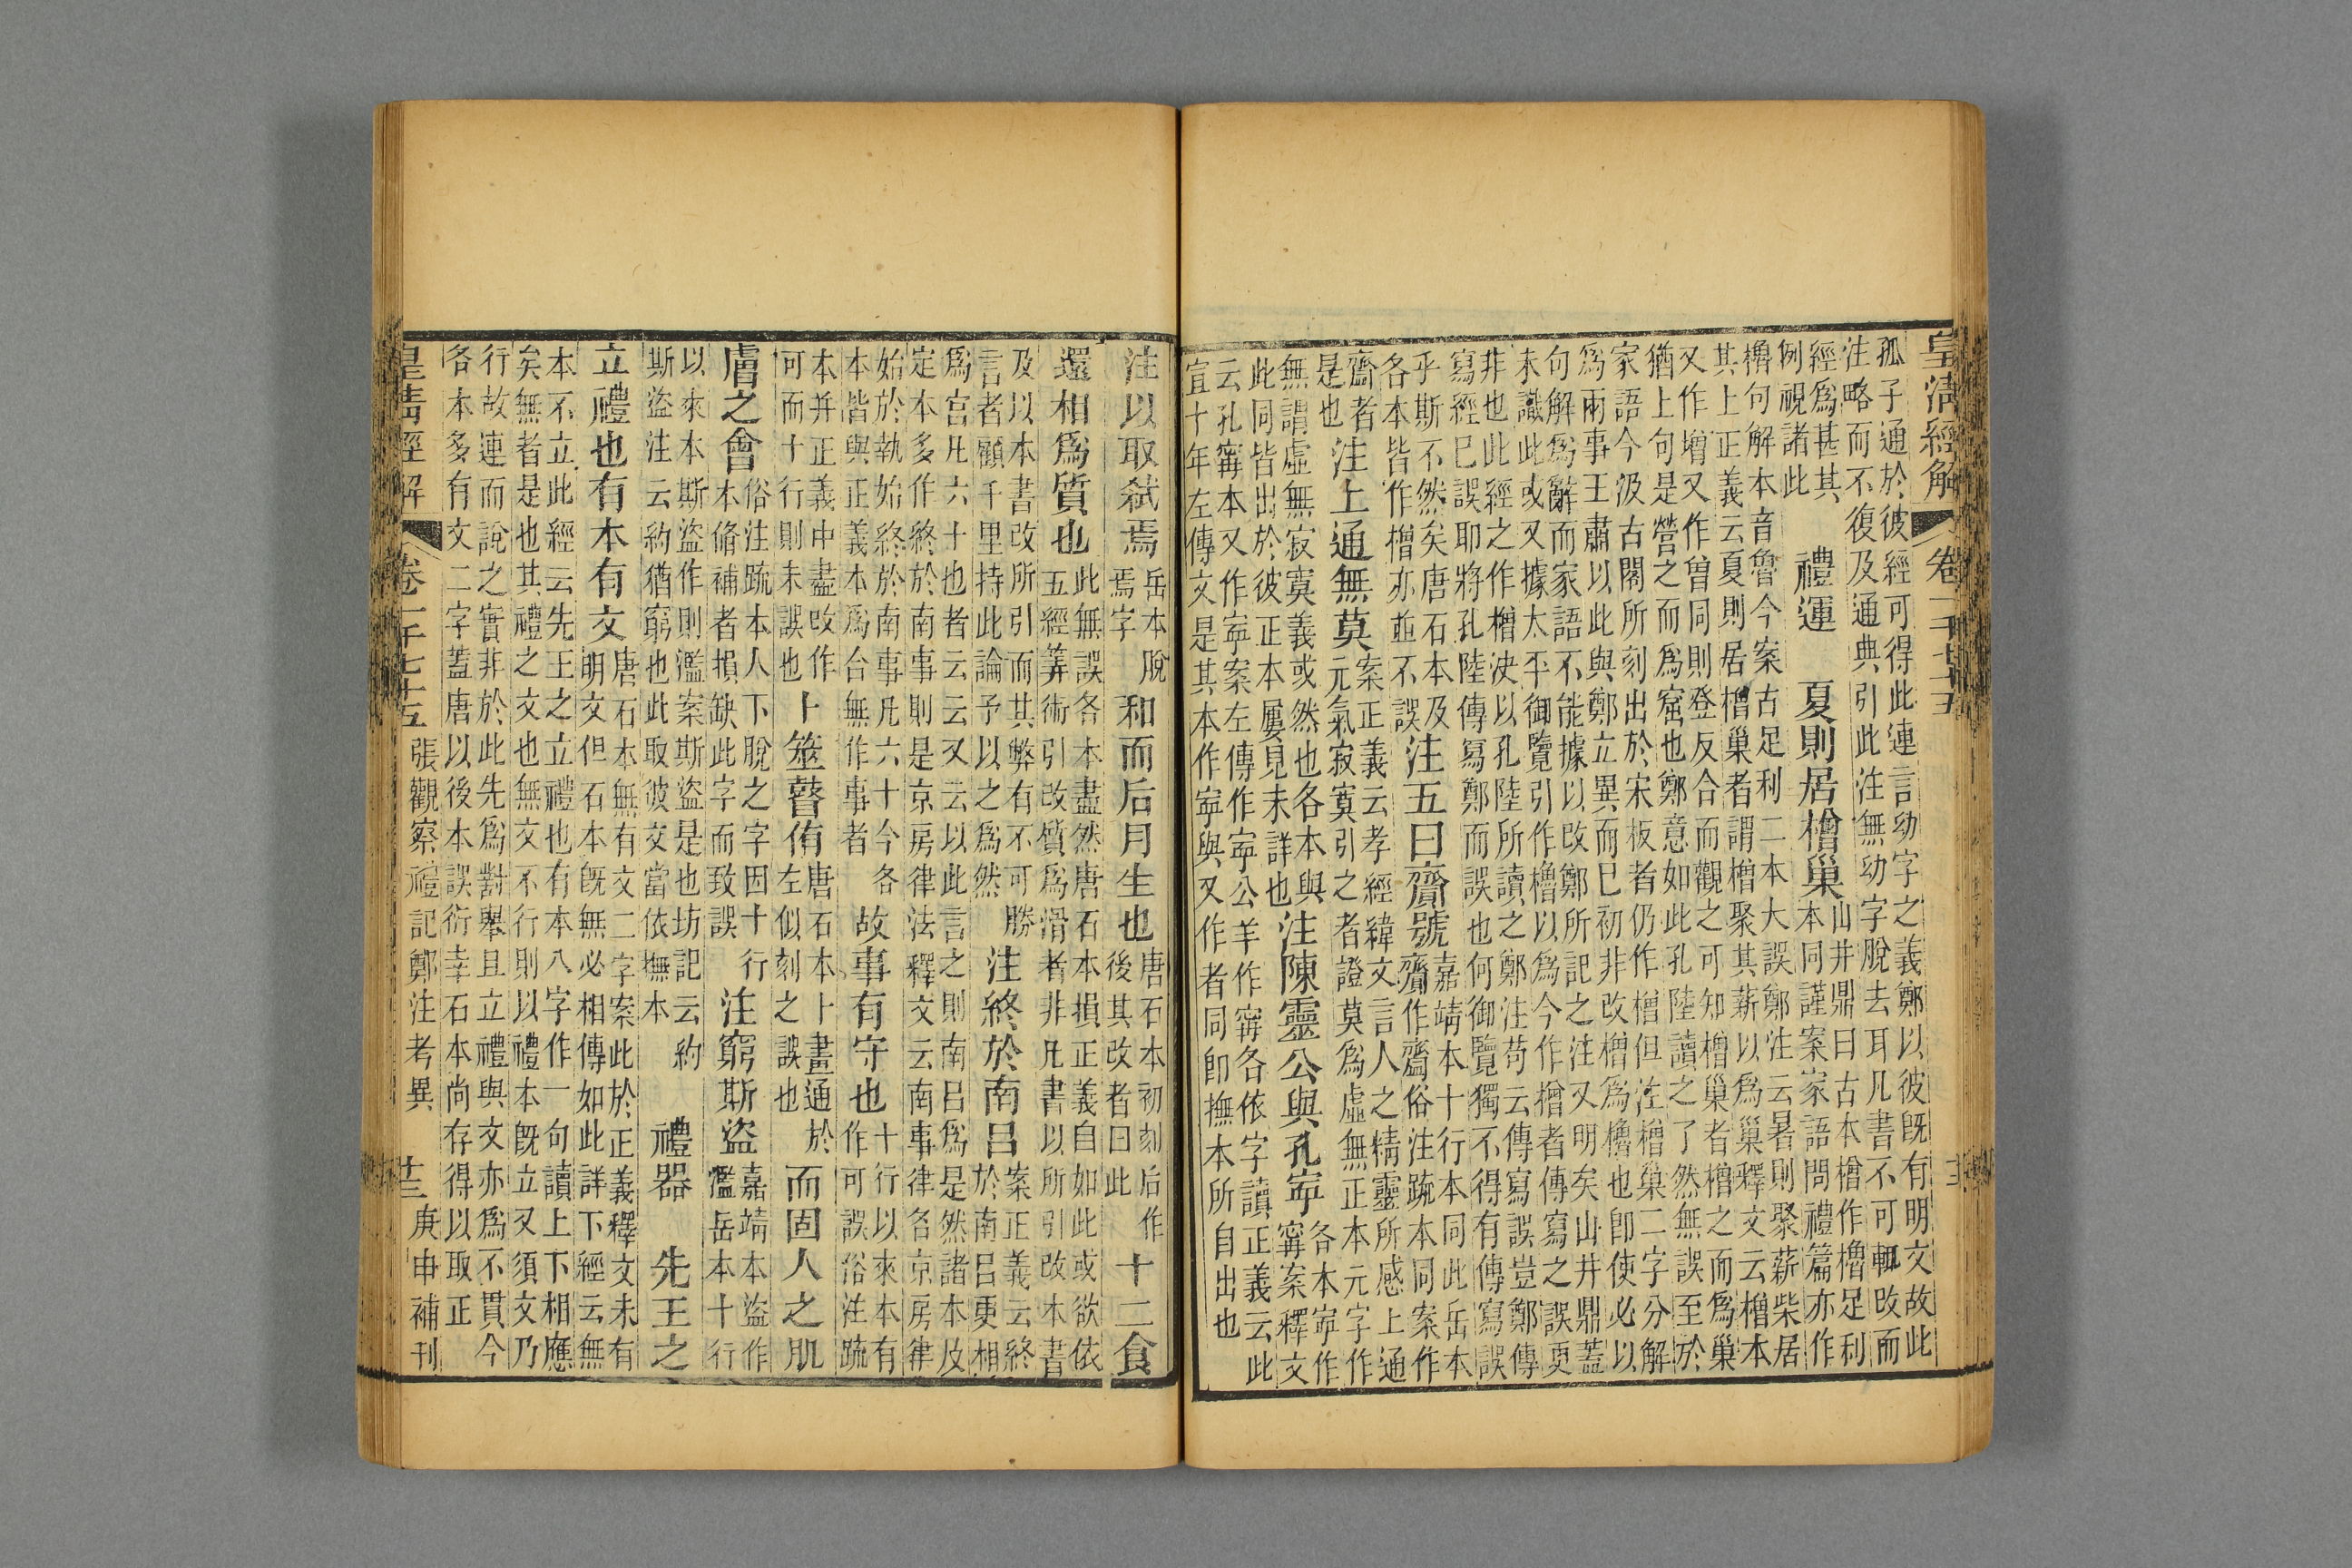 皇清經解 卷一千七十五
孤子通於彼經可得此連言幼字之義鄭以彼既有明文故此
注略而不復及通典引此注無幼字脫去耳凡書不可輒改而
經為甚其
例視諸此
禮運 夏則居橧巢
山井鼎曰古本橧作櫓足利
本同謹案家語問禮篇亦作
櫓句解本音魯今案古足利二本大誤鄭注云暑則聚薪柴居
其上正義云夏則居橧巢者謂橧聚其薪以為巢釋文云橧本
又作增又作曾同則登反合而觀之可知橧巢者橧之而為巢
猶上句是營之而為窟也鄭意如此孔陸讀之了然無誤至於
家語今汲古閣所刻出於宋板者仍作橧但注橧巢二字分解
為兩事王肅以此與鄭立異而已初非改橧為櫓也即使必以
句解為辭而家語不能據以改鄭所記之注又明矣山井鼎蓋
未識此或又據太平御覽引作櫓以為今作橧者傳寫之誤更
非也此經之作橧決以孔陸所讀之鄭注苟云傳寫誤豈鄭傳
寫經已誤耶將孔陸傳寫鄭而誤也何御覽獨不得有傳寫誤
乎斯不然矣唐石本及
各本皆作橧亦並不誤
注五曰齎號
嘉靖本十行本同此岳本
齎作齋俗注疏本同案作
齋者
是也
注上通無莫
案正義云孝經緯文言人之精靈所感上通
元氣寂寞引之者證莫為虛無正本元字作
無謂虛無寂寞義或然也各本與
此同皆出於彼正本屢見未詳也
注陳靈公與孔寧
各本寧作
甯案釋文
云孔甯本又作寧案左傳作寧公羊作甯各依字讀正義云此
宣十年左傳文是其本作寧與又作者同即撫本所自出也
注以取弒焉
岳本脫
焉字
和而后月生也
唐石本初刻后作
後其改者曰此
十二食
還相為質也
此無誤各本盡然唐石本損正義自如此或欲依
五經筭術引改質為滑者非凡書以所引改本書
及以本書改所引而其弊有不可勝
言者顧千里持此論予以之為然
注終於南呂
案正義云終
於南呂更相
為宮凡六十也者云云又云以此言之則南呂為是然諸本及
定本多作終於南事則是京房律法釋文云南事律名京房律
始於執始終於南事凡六十今各
本皆與正義本為台無作事者
故事有守也
十行以來本有
作可誤俗注疏
本幷正義中盡改作
可而十行則未誤也
卜筮瞽侑
唐石本卜畫通於
左似刻之誤也
而固人之肌
膚之會
俗注疏本人下脫之字因十行
本脩補者損缺此字而致誤
注窮斯盜
嘉靖本盜作
濫岳本十行
以來本斯盜作則濫案斯盜是也坊記云約
斯盜注云約猶窮也此取彼文當依撫本
禮器 先王之
立禮也有本有文
唐石本無有文二字案此於正義釋文未有
明文但石本既無必相傳如此詳下經云無
本不立此經云先王之立禮也有本八字作一句讀上下相應
矣無者是也其禮之文也無文不行則以禮本既立又須文乃
行故連而說之實非於此先為對舉且立禮與文亦為不貫今
各本多有文二字蓋唐以後本誤衍幸石本尚存得以取正
皇清經解 卷一千七十五 張觀察禮記鄭注考異 十三 庚申補刊